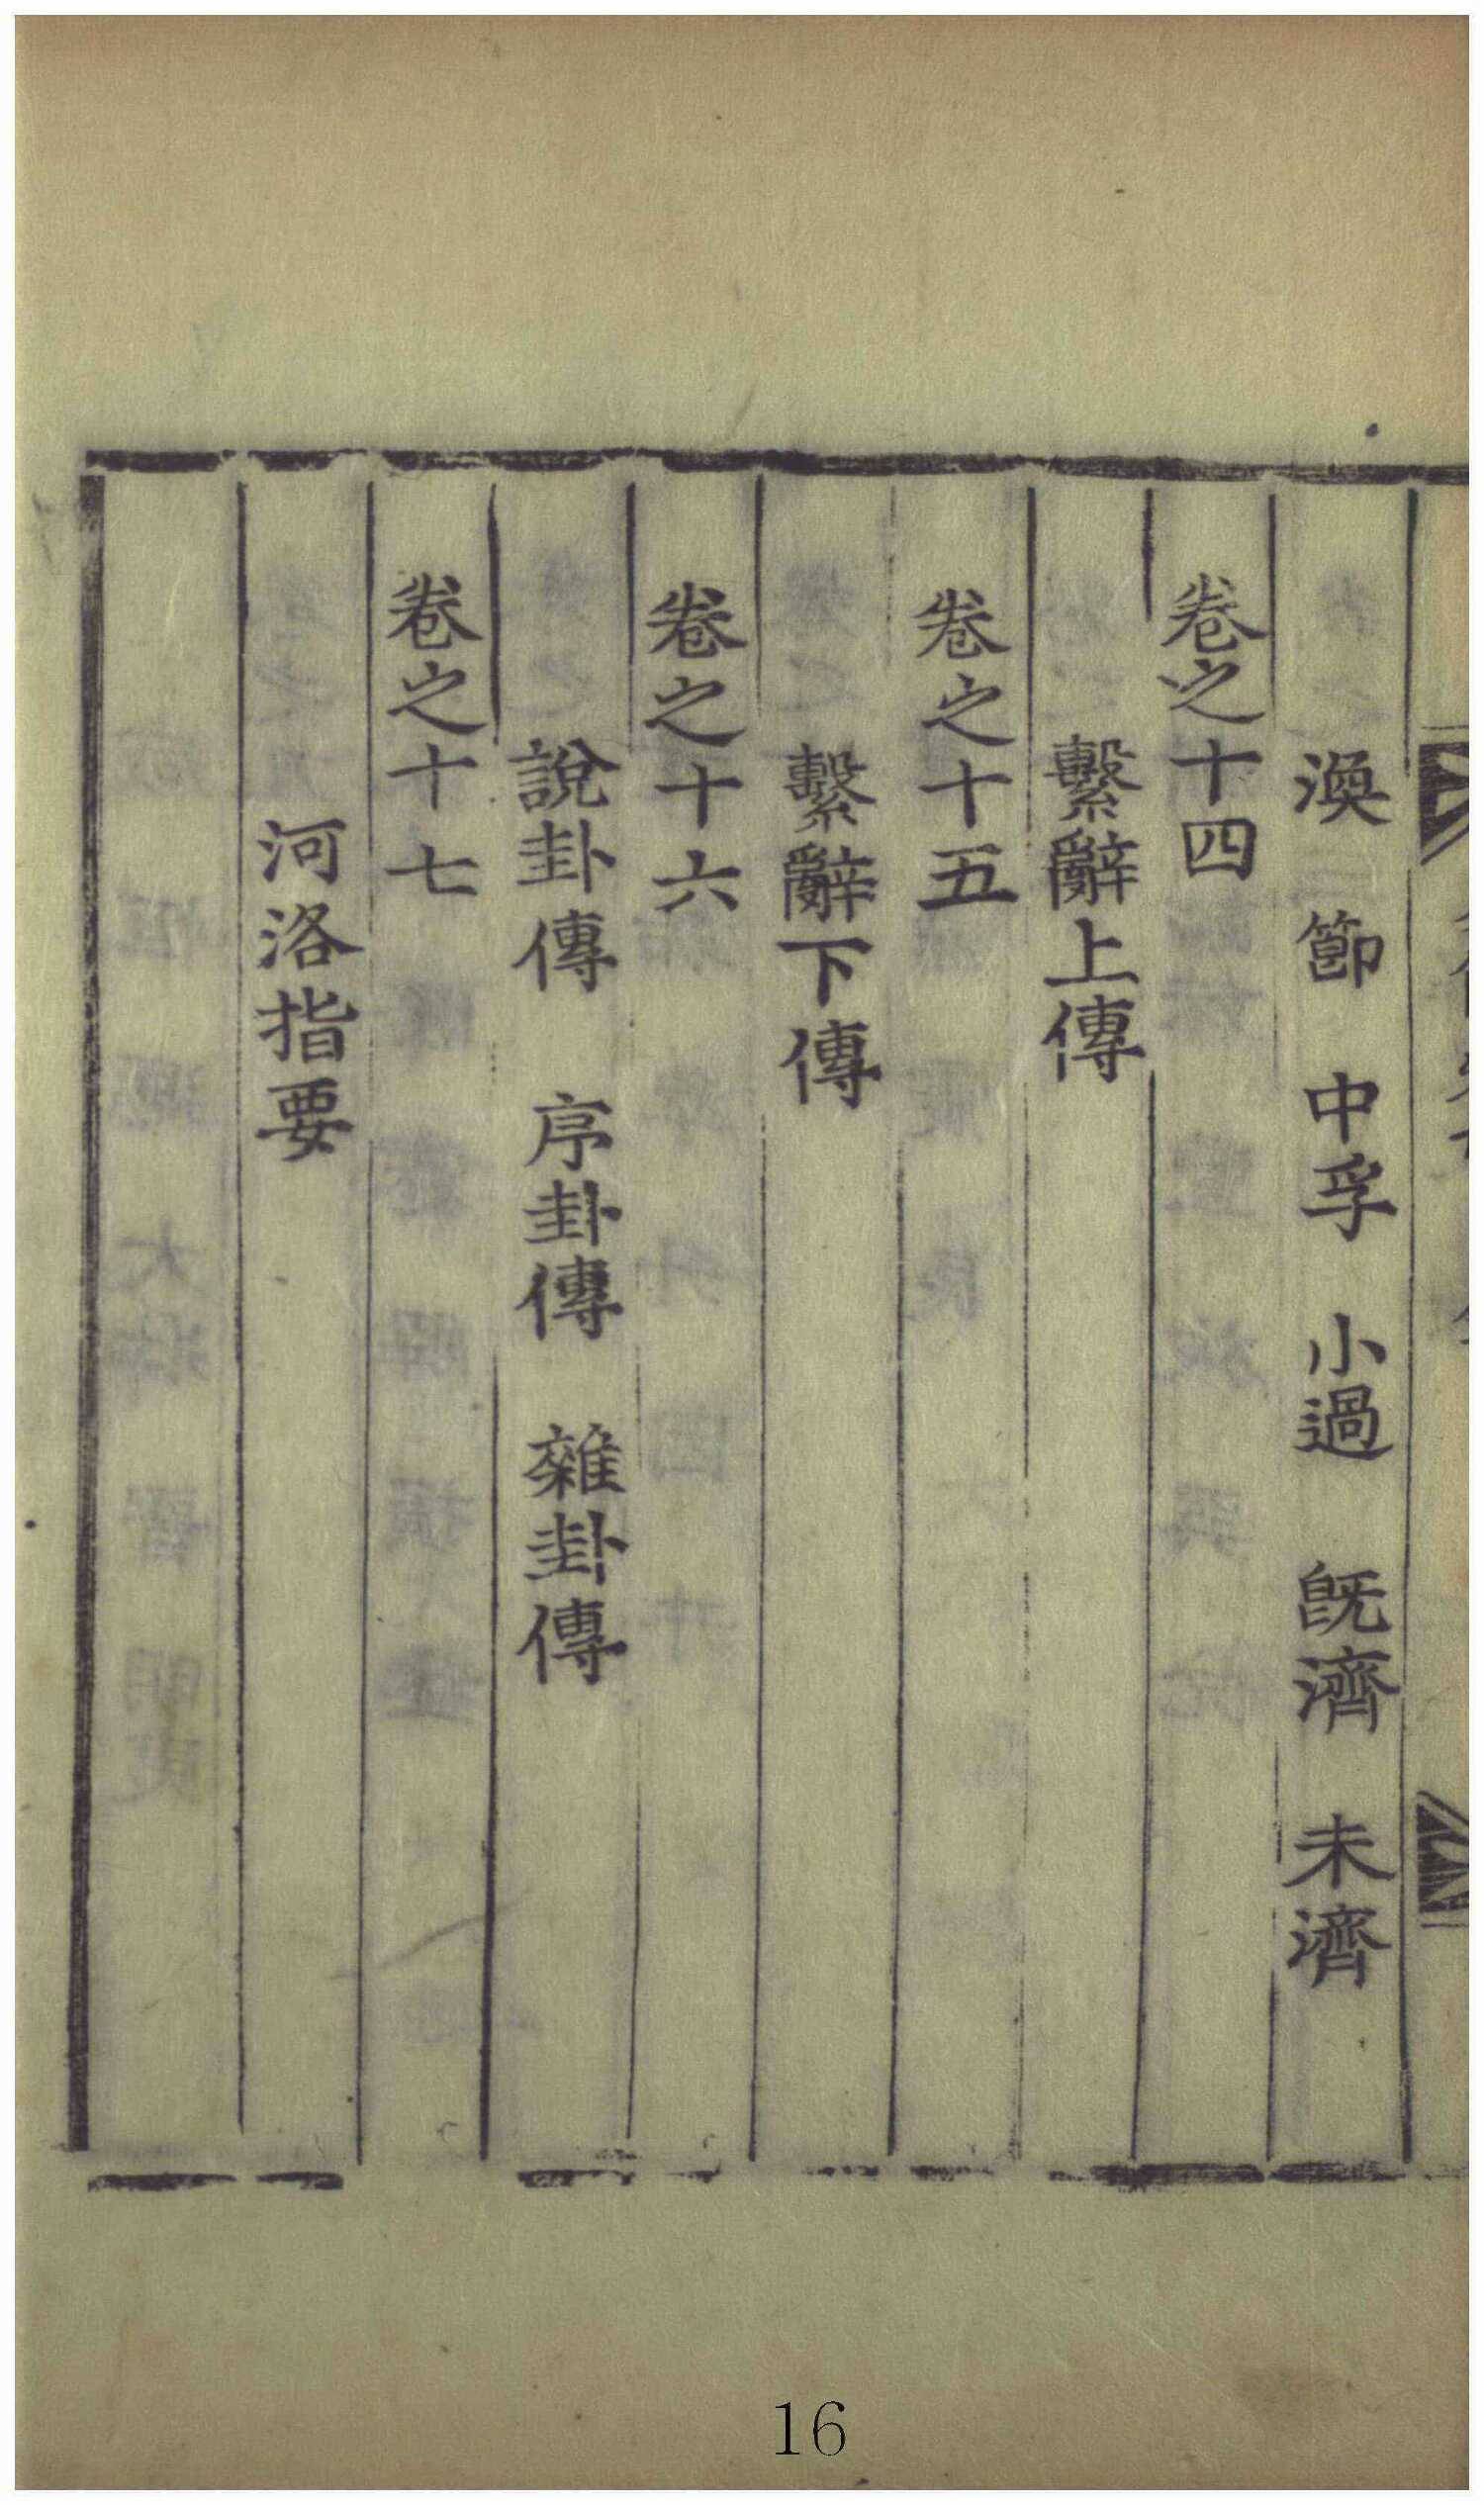 渙　節　中孚　小過　旣濟　未濟
卷之十四
繫辭上傳
卷之十五
繫辭下傳
卷之十六
說卦傳　序卦傳　雜卦傳
卷之十七
河洛指要
16